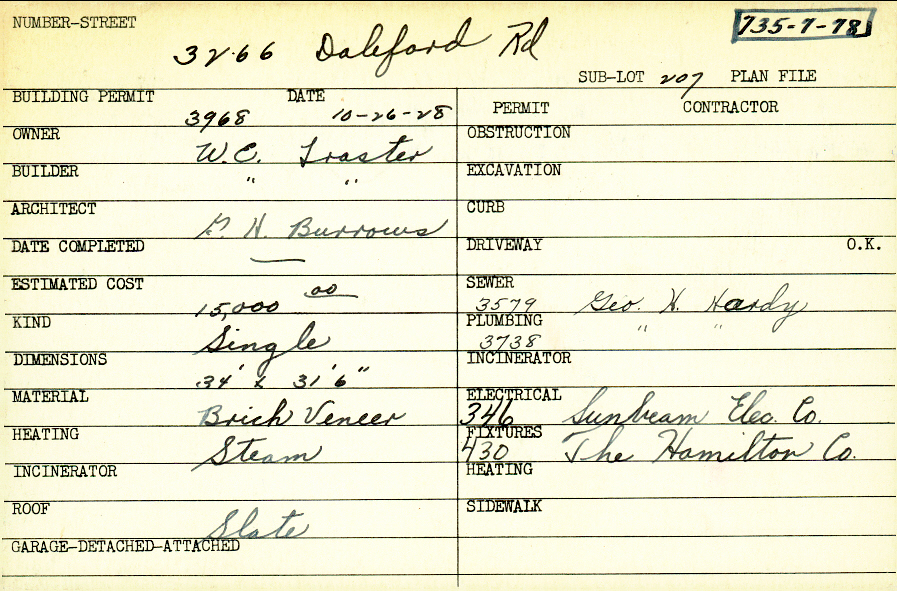 NUMBER-STREET 3266 Daleford Rd 735-7-78
SUB-LOT 207 PLAN FILE
BUILDING PERMIT 3968 DATE 10-26-28
OWNER W.C. Traster
BUILDER " "
ARCHITECT G. H. Burrows
DATE COMPLETED —
ESTIMATED COST 15,000 00
KIND Single
DIMENSIONS 34' x 31'6"
MATERIAL Brick Veneer
HEATING Steam
INCINERATOR
ROOF Slate
GARAGE-DETACHED-ATTACHED
PERMIT CONTRACTOR
OBSTRUCTION
EXCAVATION
CURB
DRIVEWAY O.K.
SEWER 3579 Geo. H. Hardy
PLUMBING 3738 " "
INCINERATOR
ELECTRICAL 346 Sunbeam Elec. Co.
FIXTURES 430 The Hamilton Co.
HEATING
SIDEWALK